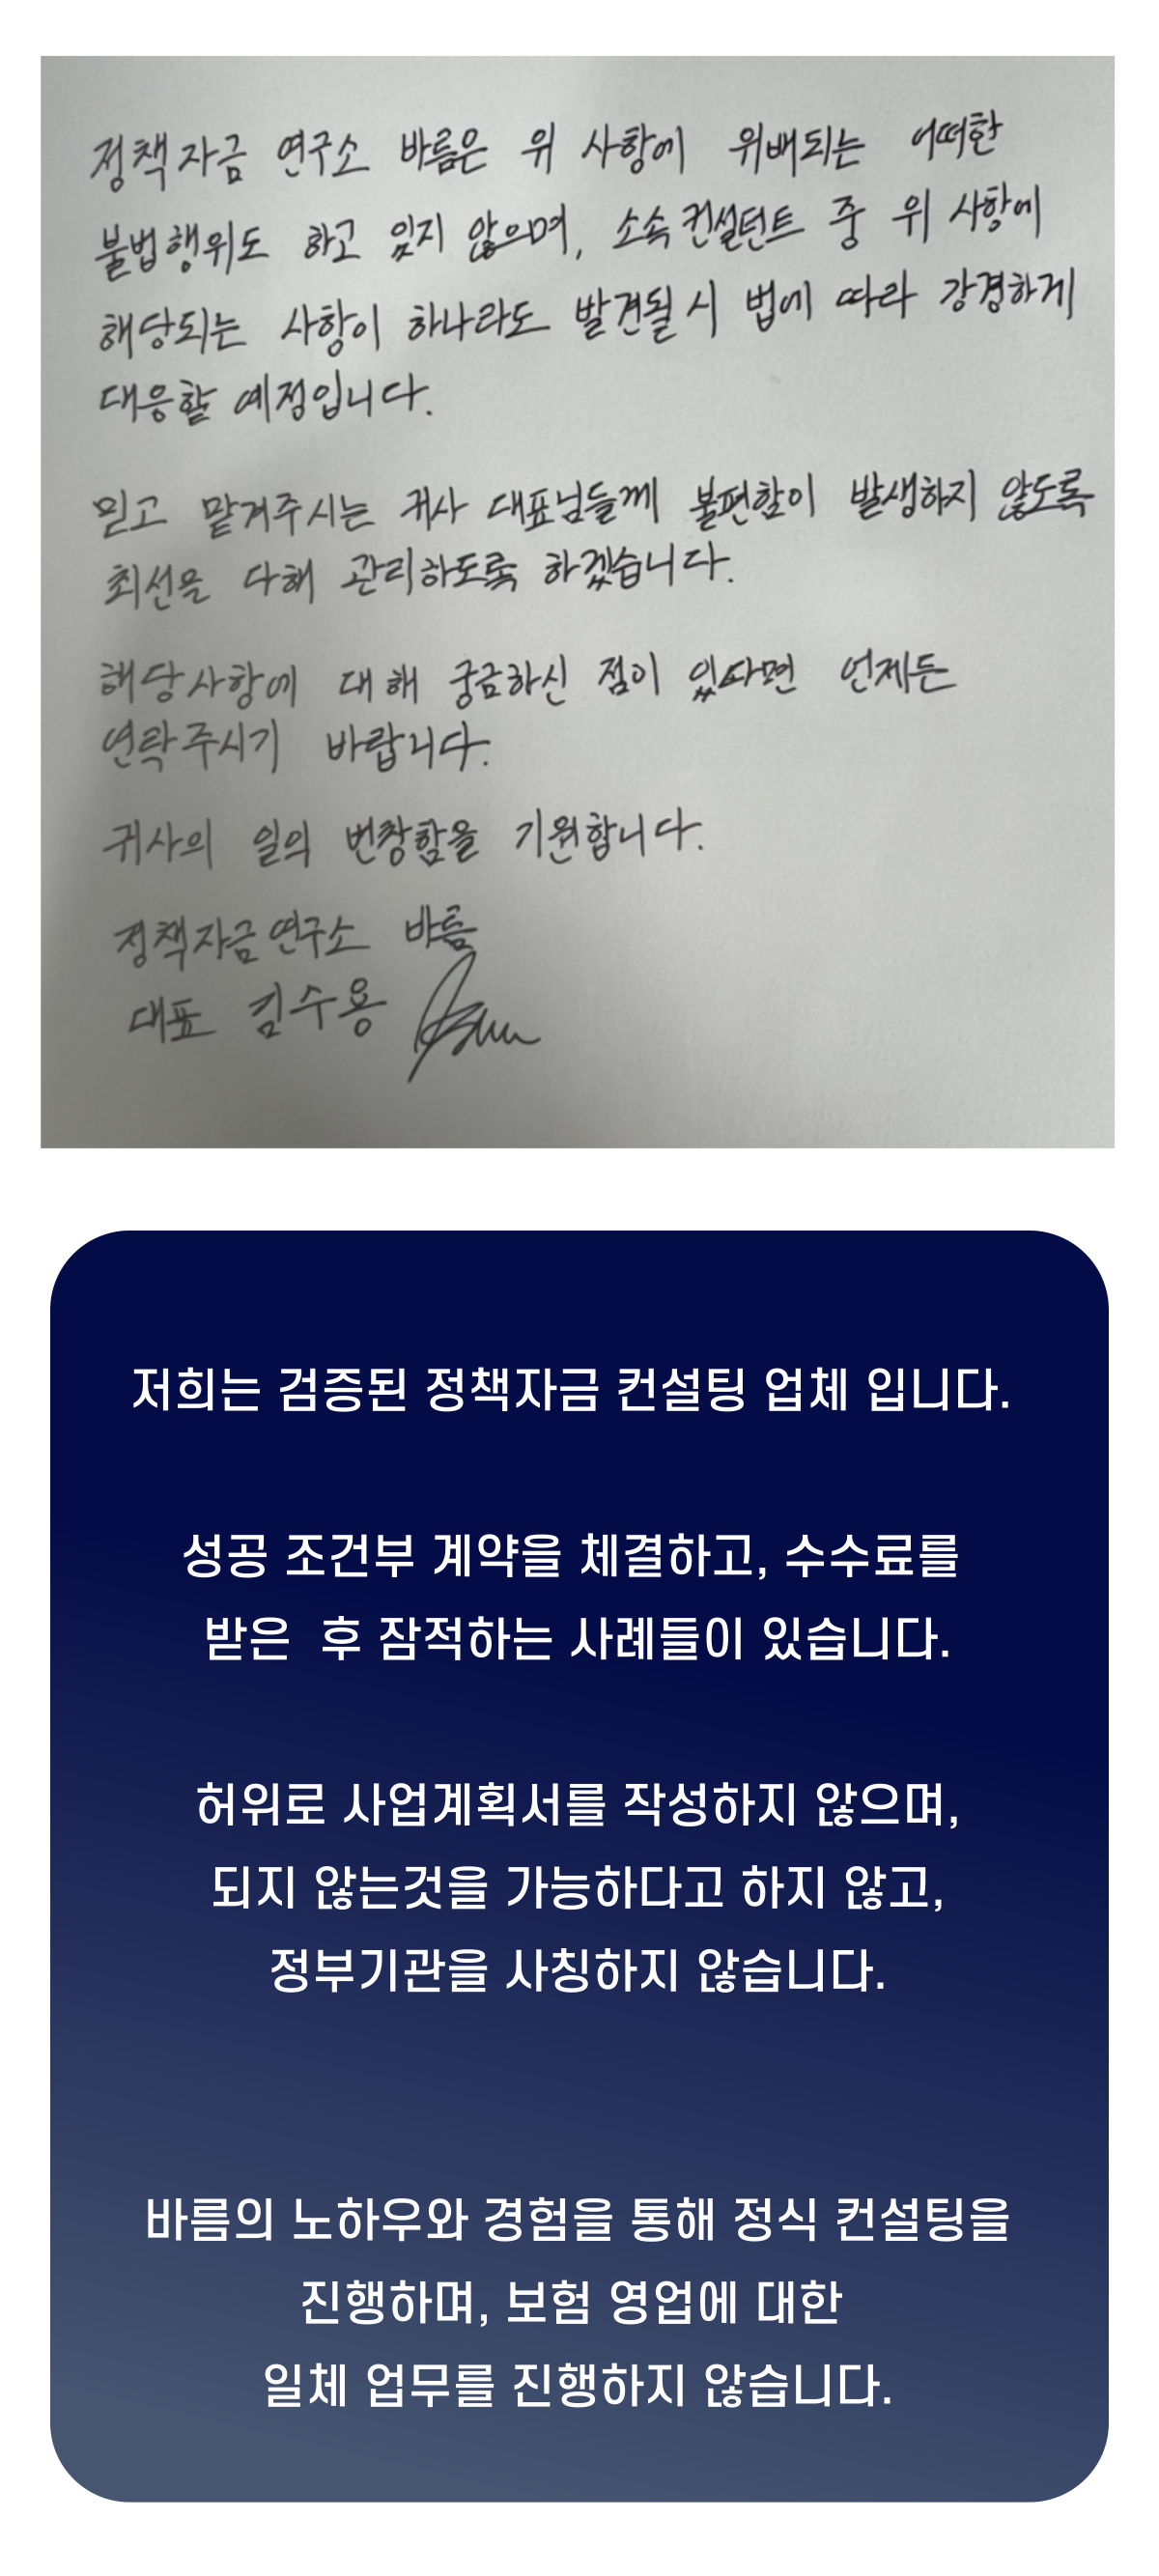 정책자금 연구소 바름은 위 사항에 위배되는 어떠한
불법행위도 하고 있지 않으며, 소속 컨설턴트 중 위 사항에
해당되는 사항이 하나라도 발견될 시 법에 따라 강경하게
대응할 예정입니다.
믿고 맡겨주시는 귀사 대표님들께 불편함이 발생하지 않도록
최선을 다해 관리하도록 하겠습니다.
해당사항에 대해 궁금하신 점이 있다면 언제든
연락주시기 바랍니다.
귀사의 일의 번창함을 기원합니다.
정책자금연구소 바름
대표 김수용
저희는 검증된 정책자금 컨설팅 업체 입니다.
성공 조건부 계약을 체결하고, 수수료를
받은 후 잠적하는 사례들이 있습니다.
허위로 사업계획서를 작성하지 않으며,
되지 않는것을 가능하다고 하지 않고,
정부기관을 사칭하지 않습니다.
바름의 노하우와 경험을 통해 정식 컨설팅을
진행하며, 보험 영업에 대한
일체 업무를 진행하지 않습니다.